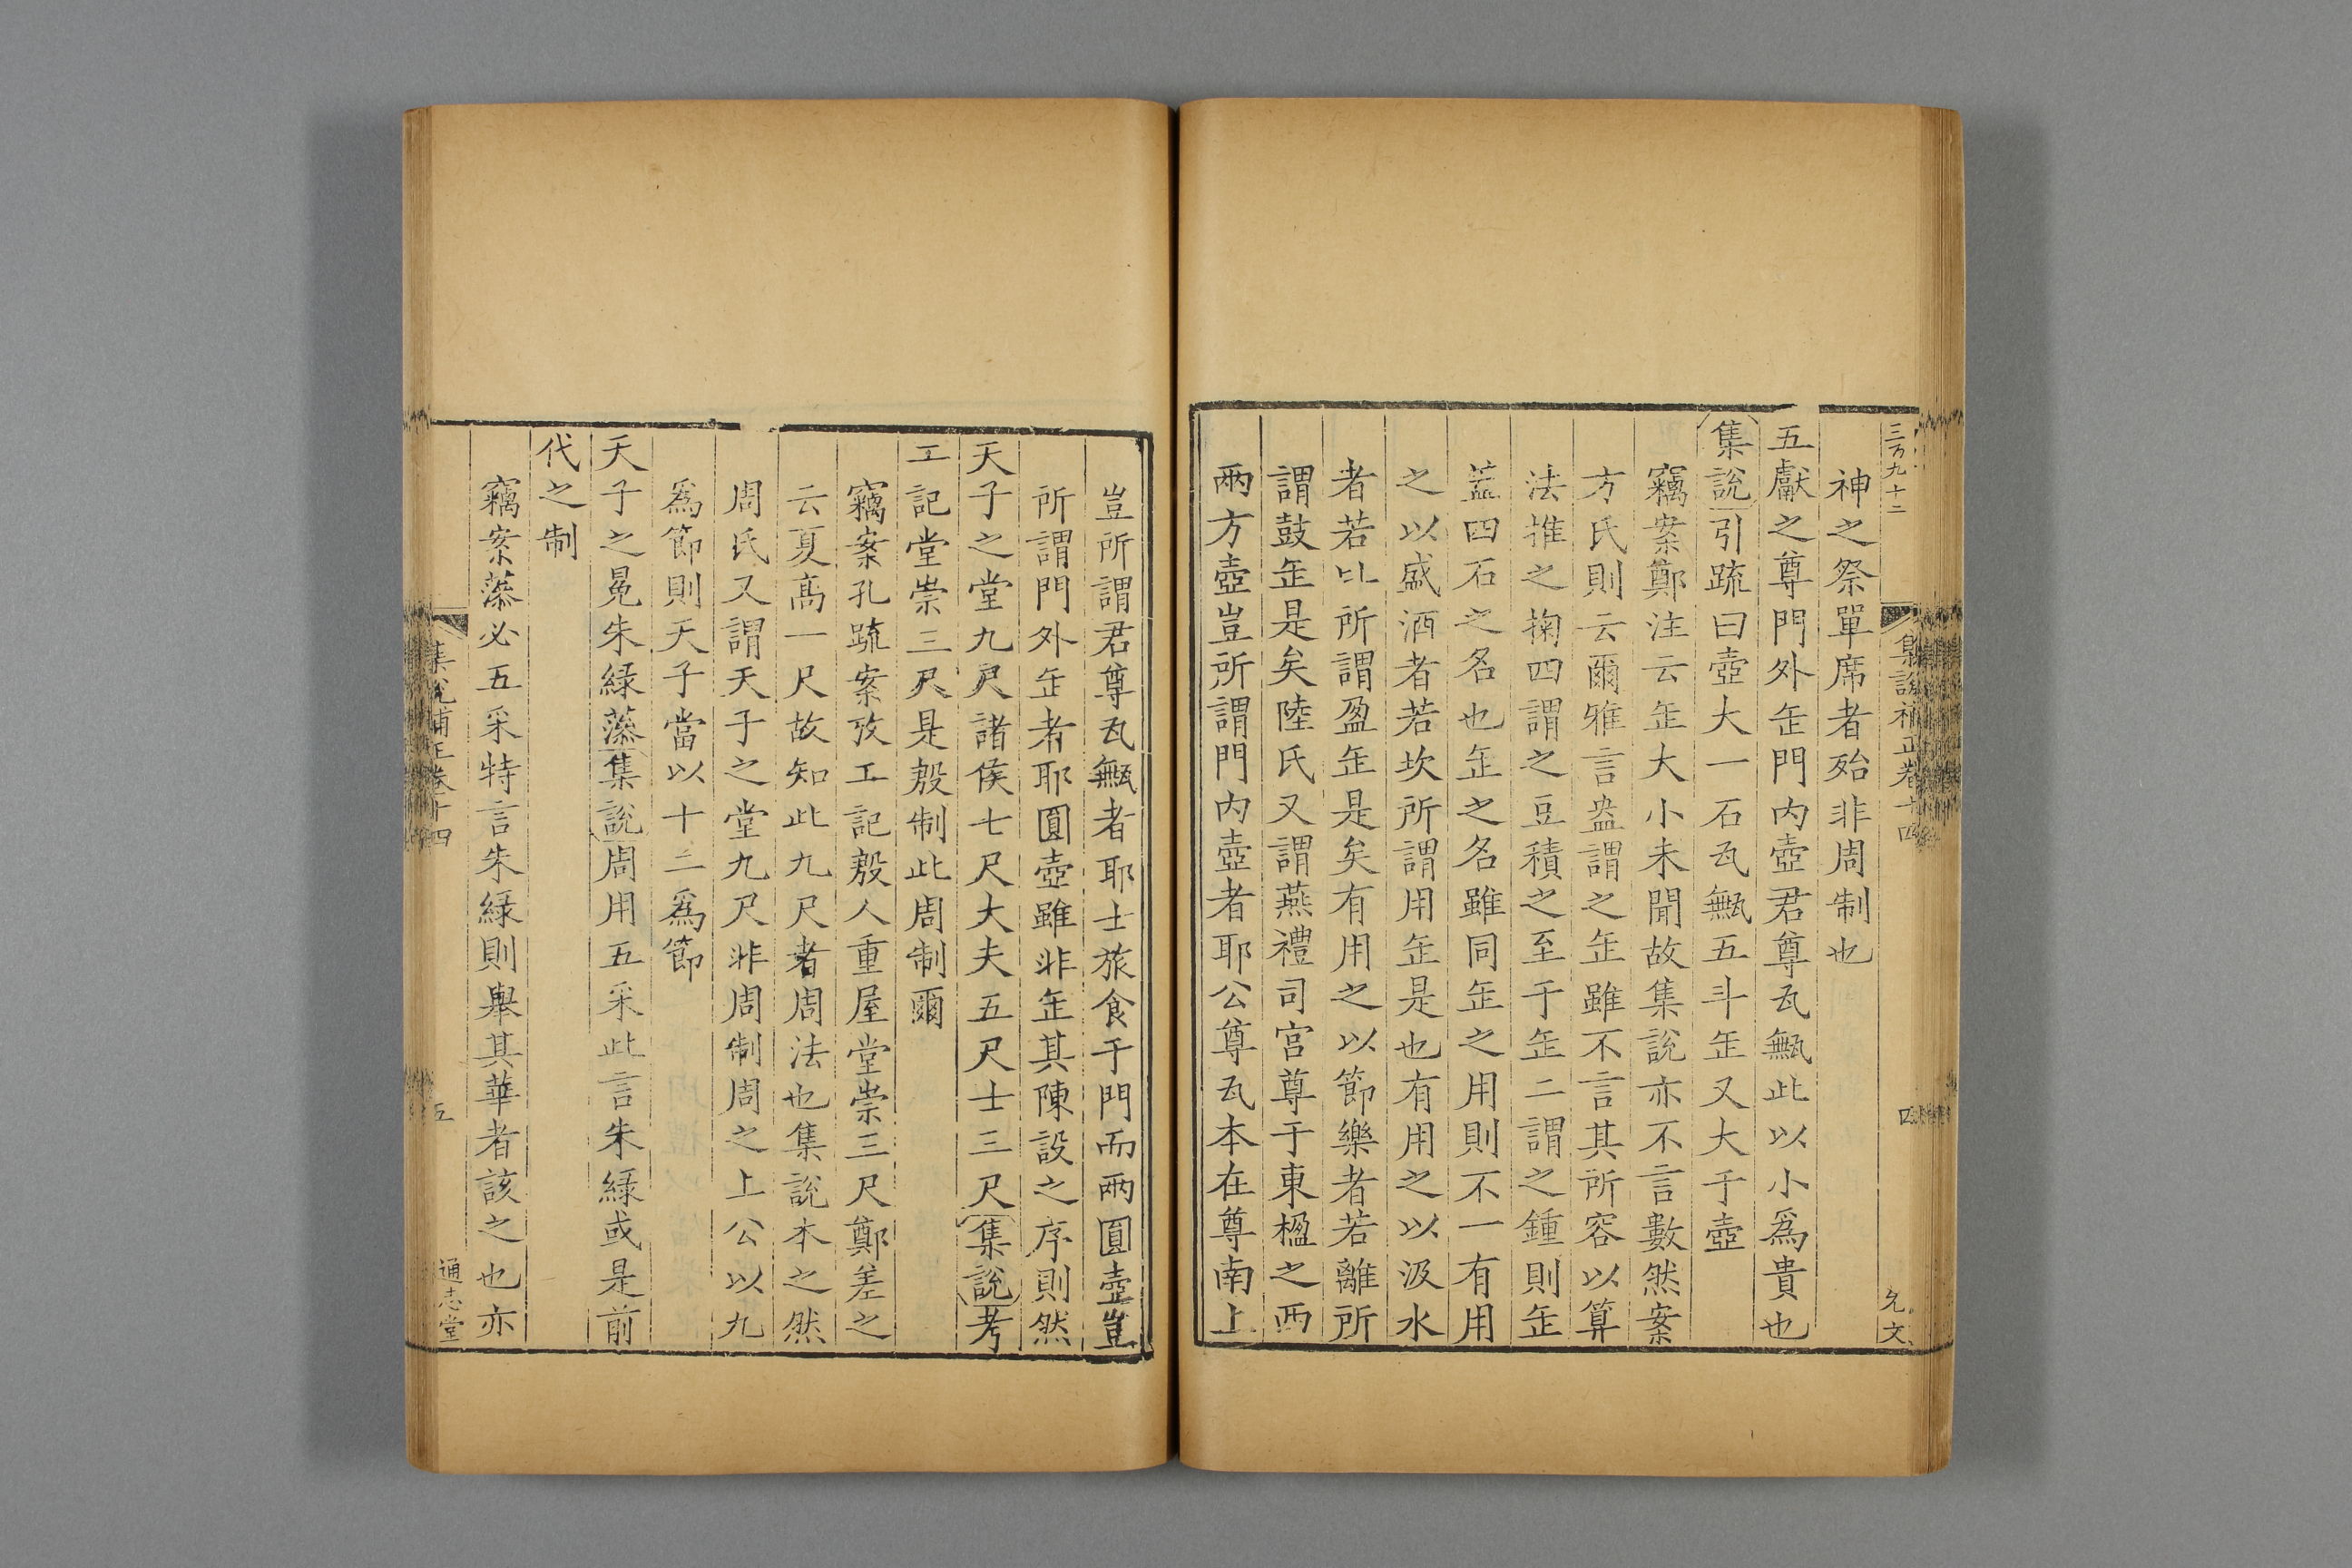 三百九十二
集說補正卷十四
四
允文
神之祭單席者殆非周制也
五獻之尊門外缶門內壺君尊瓦甒此以小爲貴也
集說引疏曰壺大一石瓦甒五斗缶又大于壺
竊案鄭注云缶大小未聞故集說亦不言數然案
方氏則云爾雅言盎謂之缶雖不言其所容以算
法推之掬四謂之豆積之至于缶二謂之鍾則缶
葢四石之名也缶之名雖同缶之用則不一有用
之以盛酒者若坎所謂用缶是也有用之以汲水
者若比所謂盈缶是矣有用之以節樂者若離所
謂鼓缶是矣陸氏又謂燕禮司宮尊于東楹之西
兩方壺豈所謂門內壺者耶公尊瓦本在尊南上
豈所謂君尊瓦甒者耶士旅食于門而兩圓壺豈
所謂門外缶者耶圓壺雖非缶其陳設之序則然
天子之堂九尺諸侯七尺大夫五尺士三尺集說考
工記堂崇三尺是殷制此周制爾
竊案孔疏案攷工記殷人重屋堂崇三尺鄭差之
云夏高一尺故知此九尺者周法也集說本之然
周氏又謂天子之堂九尺非周制周之上公以九
爲節則天子當以十二爲節
天子之冕朱綠藻集說周用五采此言朱綠或是前
代之制
竊案藻必五采特言朱綠則舉其華者該之也亦
集說補正卷十四
五
通志堂